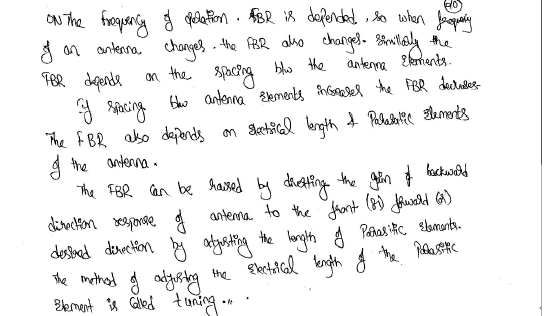 ON The frequency of operation. FBR is depended. so when frequency
of an antenna changes. the FBR also changes. Similarly the
FBR depends on the spacing b/w the antenna Elements.
if spacing b/w antenna Elements increases the FBR decreases
The FBR also depends on electrical length of Parasitic Elements
of the antenna.
The FBR can be raised by diverting the gain of backward
direction response of antenna to the front (or) forward (or)
desired direction by adjusting the length of Parasitic Elements.
The method of adjusting the Electrical length of the Parasitic
Element is Called tuning...